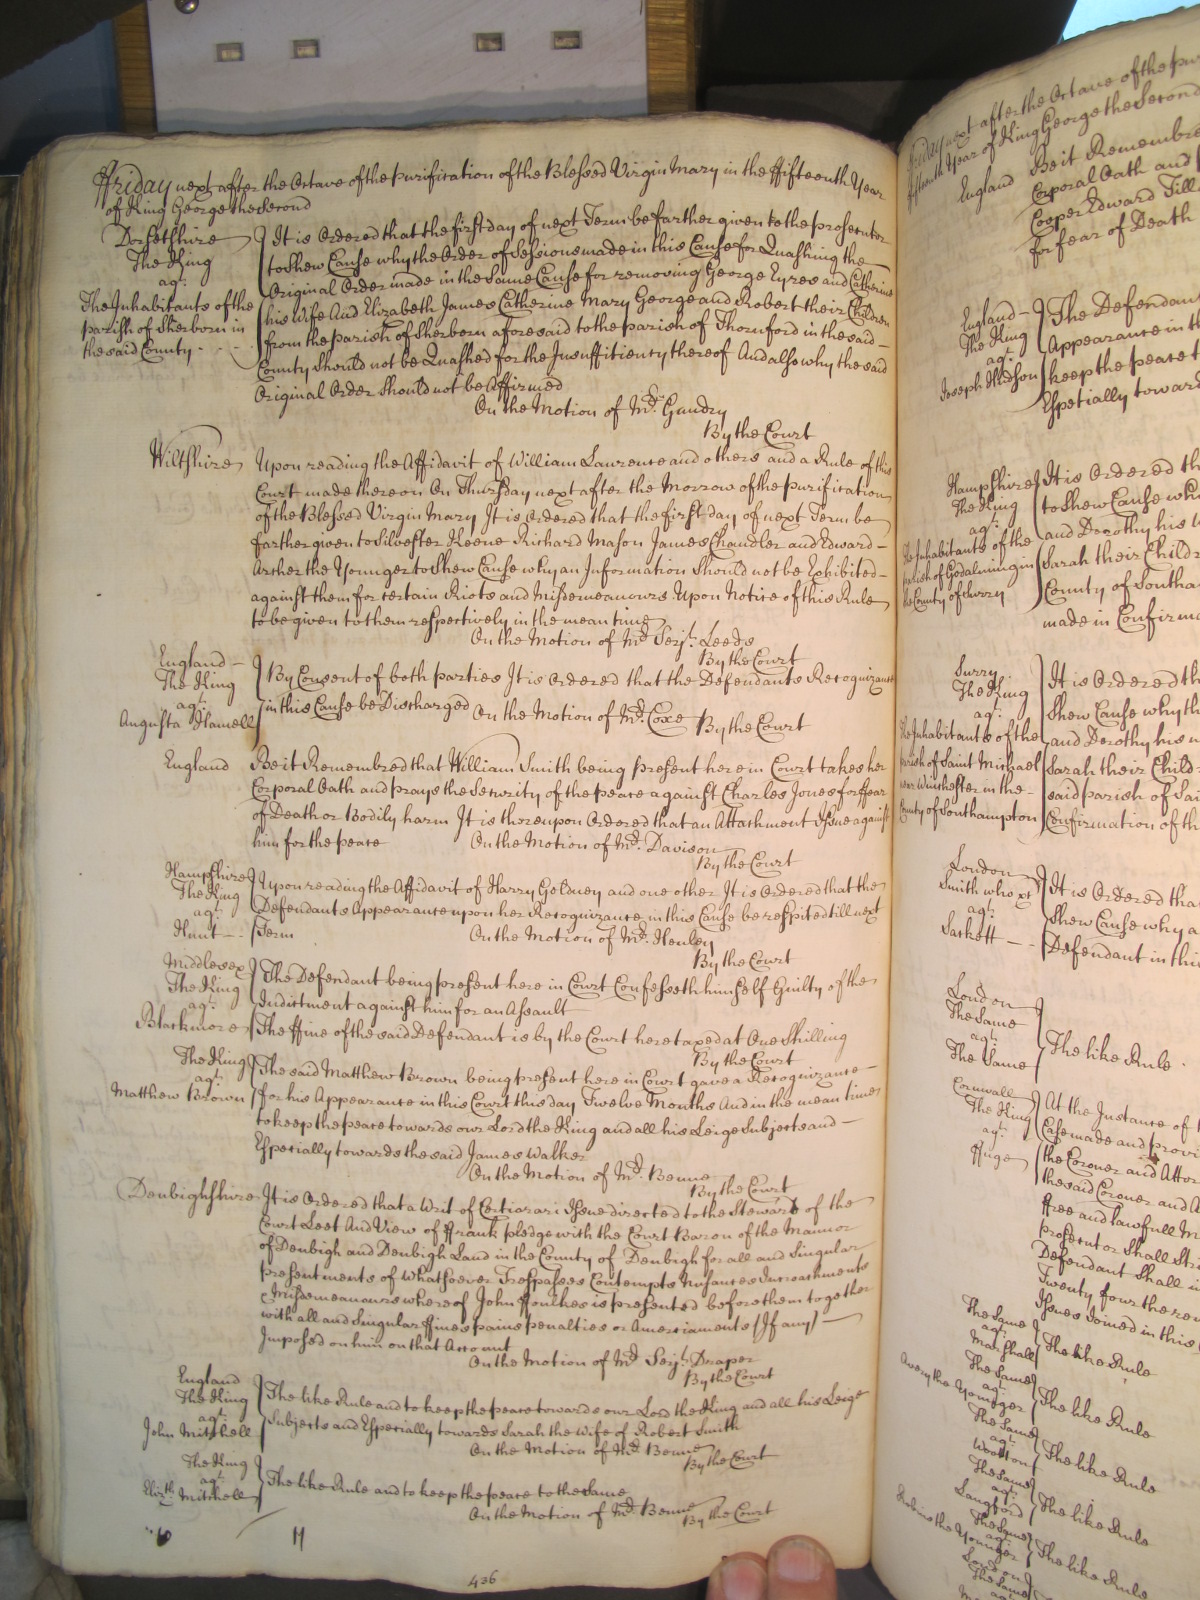 ffriday next after the Octave of the purification of the Blessed Virgin Mary in the ffifteenth Year
of King George the Second
Dorsetshire
The King
agt.
The Inhabitants of the
parish of Sherborn in
the said County
It is Ordered that the first day of next Term be farther given to the prosecutor
to Shew Cause why the Order of Sessions made in this Cause for Quashing the
Original Order made in the Same Cause for removing George Eyres and Catherine
his Wife And Elizabeth James Catherine Mary George and Robert their Children
from the parish of Sherborn aforesaid to the parish of Thornford in the said
County Should not be Quashed for the Insufficiency thereof And also why the said
Original Order Should not be Affirmed
On the Motion of Mr. Gundry
By the Court
Wiltshire
Upon reading the Affidavit of William Lawrence and others and a Rule of this
Court made thereon On Thursday next after the Morrow of the purification
of the Blessed Virgin Mary It is Ordered that the first day of next Term be
farther given to Silvester Keene Richard Mason James Chandler and Edward
Archer the Younger to Shew Cause why an Information Should not be Exhibited
against them for certain Riots and Misdemeanours Upon Notice of this Rule
to be given to them respectively in the mean time
On the Motion of Mr. Serjt. Leeds
By the Court
England
The King
agt.
Augusta Hamell
By Consent of both parties It is Ordered that the Defendants Recognizance
in this Cause be Discharged On the Motion of Mr. Coxe By the Court
England
Be it Remembred that William Smith being present here in Court takes her
Corporal Oath and prays the Security of the peace against Charles Jones for ffear
of Death or Bodily harm It is thereupon Ordered that an Attachment Issue against
him for the peace On the Motion of Mr. Davison
By the Court
Hampshire
The King
agt.
Hunt
Upon reading the Affidavit of Harry Geldney and one other It is Ordered that the
Defendants Appearance upon her Recognizance in this Cause be respited till next
Term On the Motion of Mr. Henley
By the Court
Middlesex
The King
agt.
Blackmore
The Defendant being present here in Court Confesseth himself Guilty of the
Indictment against him for an Assault
The ffine of the said Defendant is by the Court here taxed at One Shilling
By the Court
The King
agt.
Matthew Brown
The said Matthew Brown being present here in Court gave a Recognizance
for his Appearance in this Court this day Twelve Months And in the mean time
to keep the peace towards our Lord the King and all his Leige Subjects and
Especially towards the said James Walker
On the Motion of Mr. Benne
By the Court
Denbighshire
It is Ordered that a Writ of Certiorari Issue directed to the Steward of the
Court Leet And View of ffrank pledge with the Court Baron of the Mannor
of Denbigh and Denbigh Land in the County of Denbigh for all and Singular
presentments of whatsoever Trespasses Contempts Nusances Incroachments
Misdemeanours whereof John ffoulkes is presented before them together
with all and Singular ffines pains penalties or Amerciaments (If any)
Imposed on him on that Account
On the Motion of Mr. Serjt. Draper
By the Court
England
The King
agt.
John Mitchell
The like Rule and to keep the peace towards our Lord the King and all his Leige
Subjects and Especially towards Sarah the Wife of Robert Smith
On the Motion of Mr. Benne
By the Court
The King
agt.
Elizth. Mitchell
The like Rule and to keep the peace to the Same
On the Motion of Mr. Benne
By the Court
436
ffriday next after the Octave of the
ffifteenth Year of King George the Second
England
Be it Remembre
Corporal Oath and
Cooper Edward Till
for fear of Death
England
The King
agt.
Joseph Hudson
The Defendan
Appearance in th
keep the peace t
Especially toward
Hampshire
The King
agt.
The Inhabitants of the
parish of Godalming in
the County of Surry
It is Ordered th
to Shew Cause wh
and Dorothy his
Sarah their Child
County of Southa
made in Confirma
Surry
The King
agt.
The Inhabitants of the
parish of Saint Michael
near Winchester in the
County of Southampton
It is Ordered th
Shew Cause why th
and Dorothy his
Sarah their Child
said parish of Sai
Confirmation of th
London
Smith who xt
agt.
Sackett
It is Ordered tha
Shew Cause why a
Defendant in this
London
The Same
agt.
The Same
The like Rule
Cornwall
The King
agt.
ffuge
At the Instance of
Case made and provi
the Coroner and Attor
the said Coroner and A
ffree and lawfull M
prosecutor Shall Stri
Defendant Shall
Twenty four the rem
Issues Joined in this
The Same
agt.
Marshall
The like Rule
The Same
agt.
Avery the Younger
The like Rule
The Same
agt.
Wootton
The like Rule
The Same
agt.
Langford
The like Rule
The Same
agt.
the Younger
The like Rule
London
The Same
agt.